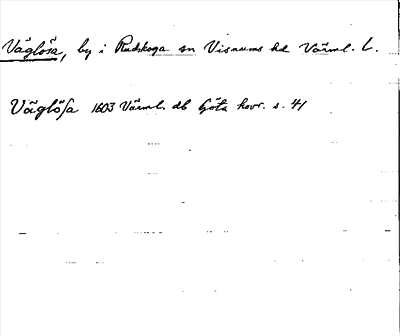 Väglösa, by i Rudskoga sn Visnums hd Värml. l.
Väglösa 1603 Värml. db Göta hovr. s. 41